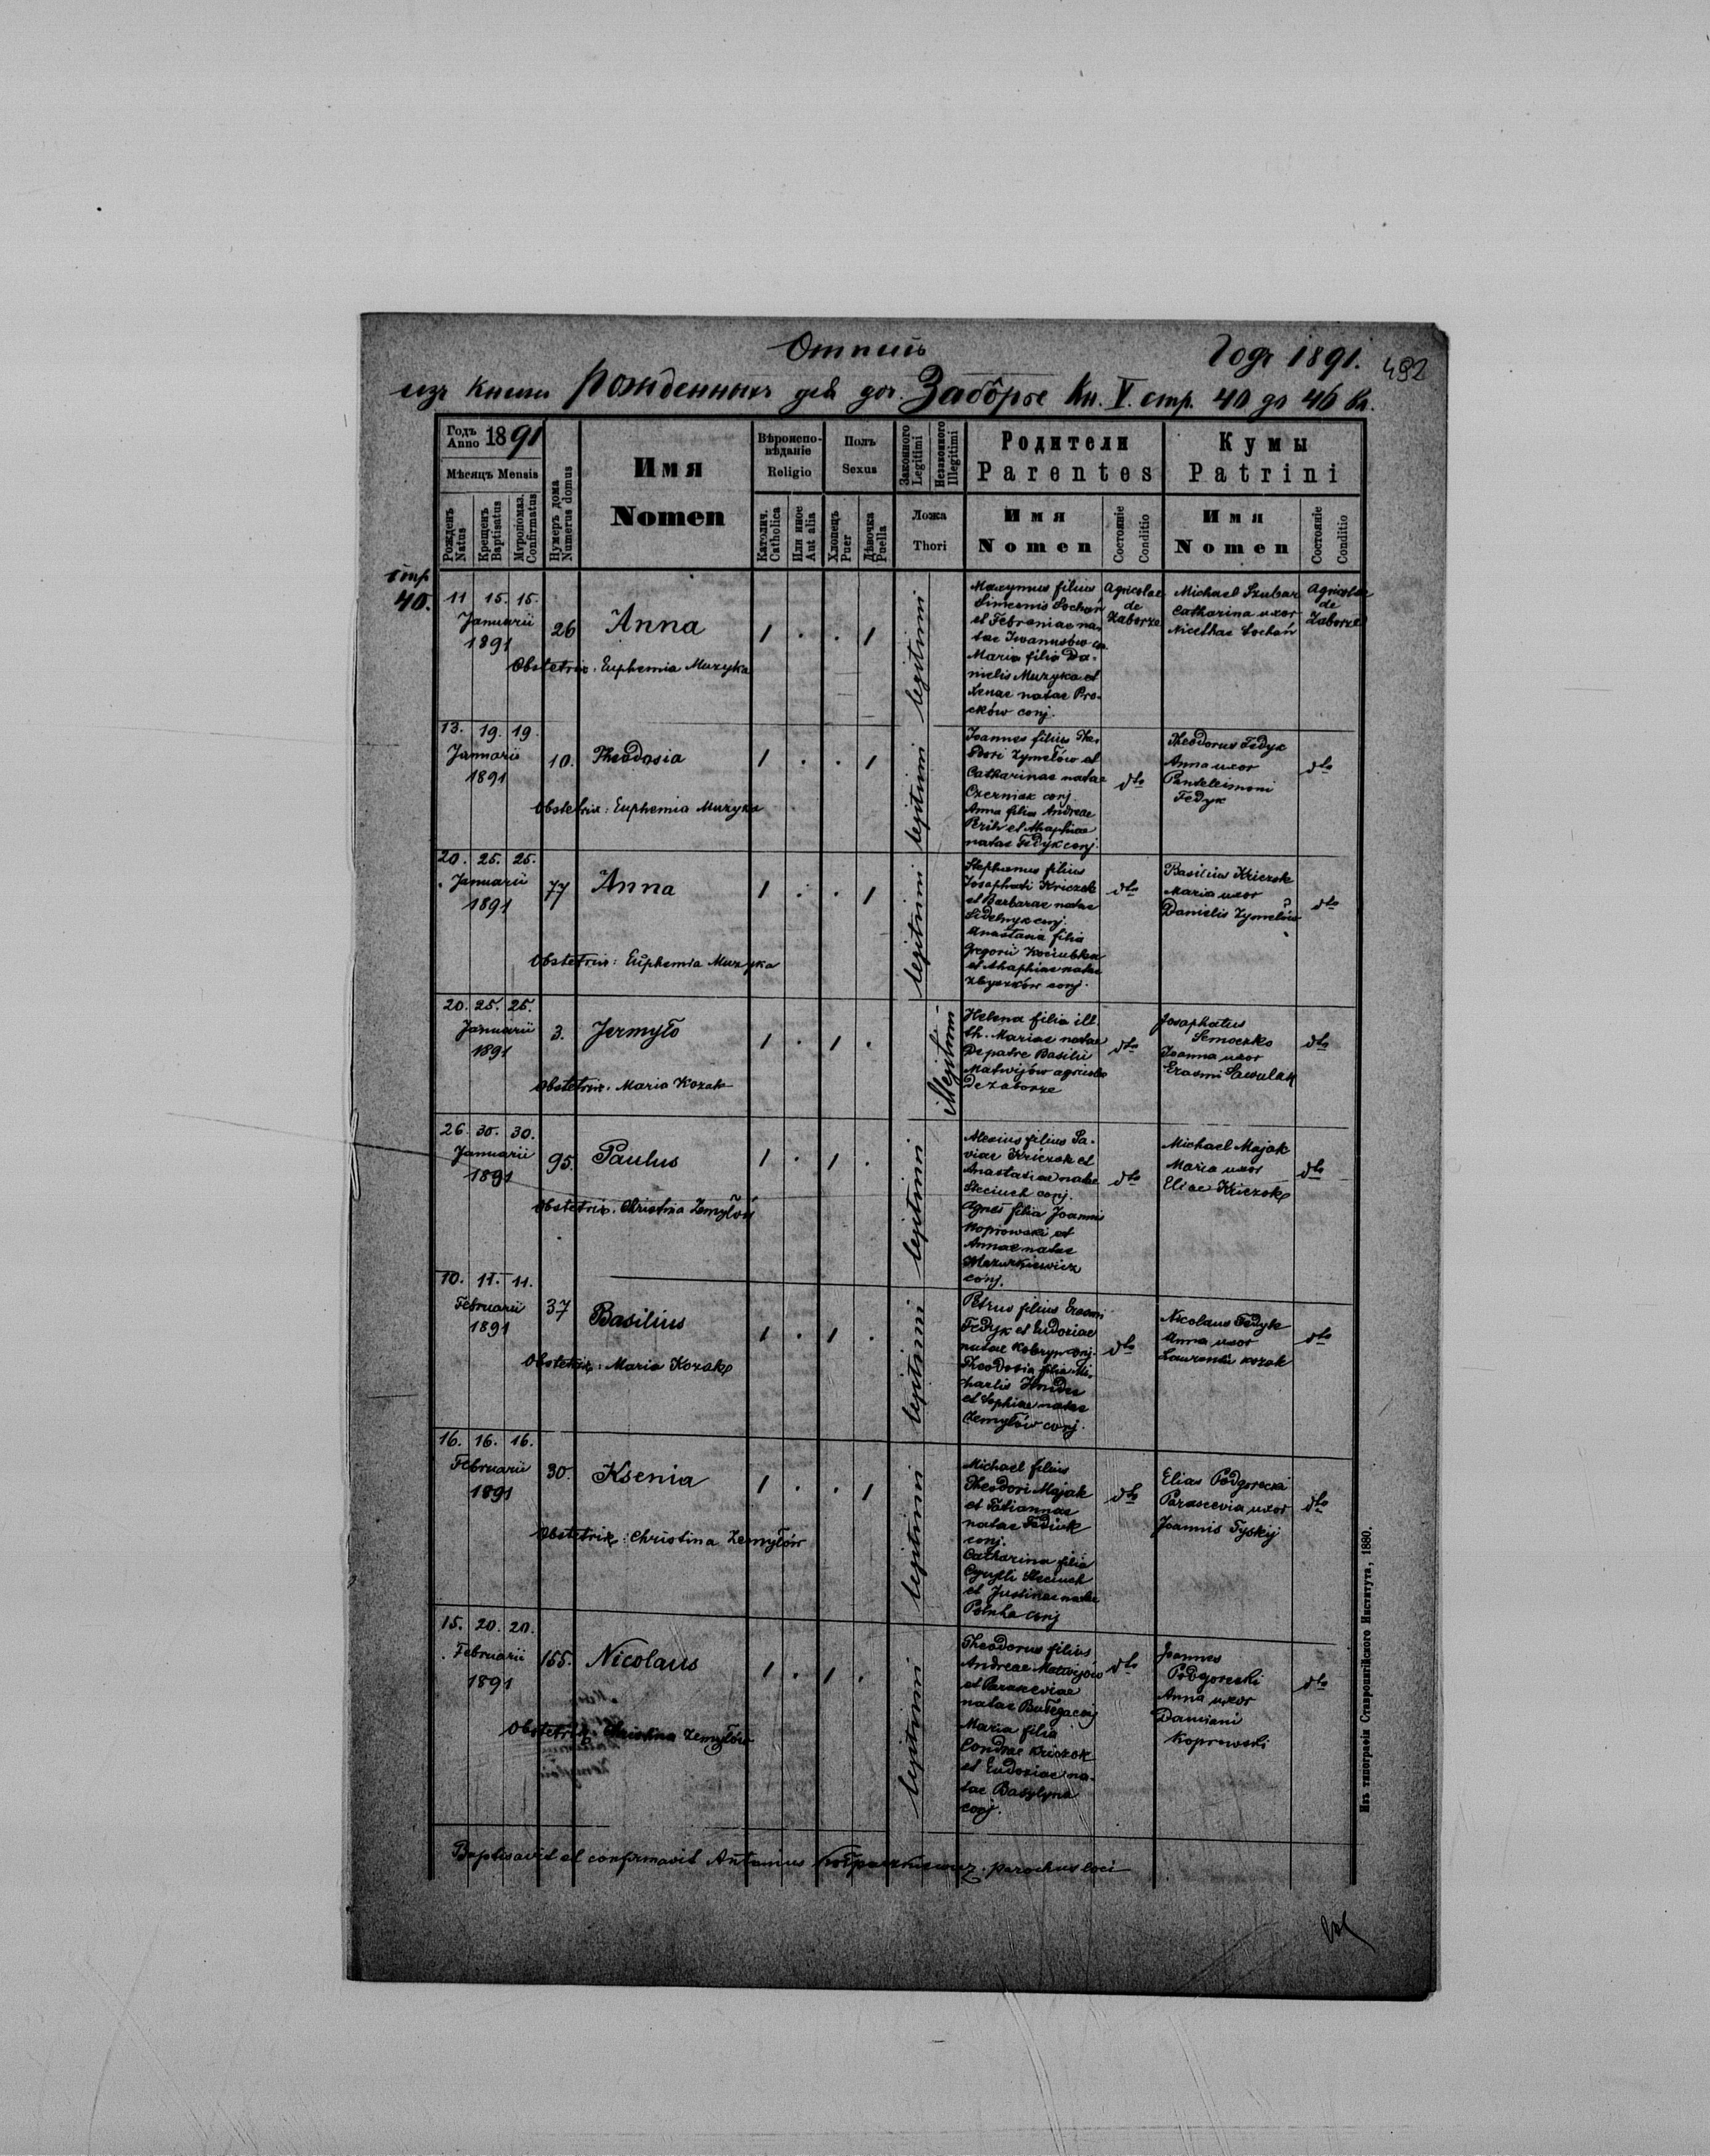 Отпись
Годъ 1891.
492
изъ книги рожденныхъ для доч. Заборѣе Кн. V. стр. 40 до 46 Вл.
Годъ Anno 1891
Мѣсяцъ Mensis
Рожденъ Natus
Крещенъ Baptisatus
Мѵропомаз. Confirmatus
Нумеръ дома Numerus domus
Имя
Nomen
Вѣроиспо-
вѣданіе
Religio
Католич. Catholica
Или иное Aut alia
Полъ
Sexus
Хлопецъ Puer
Дѣвочка Puella
Законного Legitimi
Незаконного Illegitimi
Ложа
Thori
Родители
Parentes
Имя
Nomen
Состояніе Conditio
Кумы
Patrini
Имя
Nomen
Состояніе Conditio
стр
40.
11 15. 15.
Januarii
1891
26
Anna
1 . . 1
legitimi
Obstetrix. Euphemia Muzyka
Maxymus filius
Simeonis Sochań
et Febroniae na-
tae Iwanusów co.
Maria filia Da-
nielis Muzyka et
Xenae natae Pro-
cków conj.
Agricolae
de
Zaborze
Michael Szubar
Catharina uxor
Nicethae Sochań
Agricolae
de
Zaborze
13. 19. 19.
Januarii
1891
10.
Theodosia
1 . . 1
legitimi
Obstetrix: Euphemia Muzyka
Joannes filius The-
odori Zymełów et
Catharinae natae
Czerniak conj
Anna filia Andreae
et Ahaphiae
natae Fedyk conj.
dto
Theodorus Fedyk
Anna uxor
Panteleimoni
Fedyk
dto
20. 25. 25.
Januarii
1891
77
Anna
1 . . 1
legitimi
Obstetrix: Euphemia Muzyka
Stephanus filius
Josaphati Kriczok
et Barbarae natae
Sidelnyk conj.
Anastasia filia
Gregorii Kociubka
et Ahaphiae natae
Zbyszków conj.
dto
Basilius Kriczok
Maria uxor
Danielis Zymełów
dto
20. 25. 25.
Januarii
1891
3.
Jermyło
1 . 1 .
illegitimi
Obstetrix. Maria Kozak
Helena filia ill.
th. Mariae natae
De patre Basilii
Matwijów agricolae
de Zaborze
dto
Josaphatus
Semoczko
Joanna uxor
Erasmi Sawulak
dto
26. 30. 30.
Januarii
1891
95.
Paulus
1 . 1 .
legitimi
Obstetrix. Christina Zemyłów
Alexius filius Sa-
viae Kriczok et
Anastasiae natae
Steciuch conj.
Agnes filia Joannis
Koprowski et
Annae natae
Mazurkiewicz
conj.
dto
Michael Majak
Maria uxor
Eliae Kriczok
dto
10. 11. 11.
Februarii
1891
37
Basilius
1 . 1 .
legitimi
Obstetrix: Maria Kozak
Petrus filius Erasmi
Fedyk et Eudoxiae
natae Kobryn conj.
Theodosia filia Mi-
chaelis Hnidec
et Sophiae natae
Zemyłów conj.
dto
Nicolaus Fedyk
Anna uxor
Laurentii Kozak
dto
16. 16. 16.
Februarii
1891
30.
Ksenia
1 . . 1
legitimi
Obstetrix: Christina Zemyłów
Michael filius
Theodori Majak
et Tatiannae
natae Fediuk
conj.
Catharina filia
Cyrylli Steciuch
et Justinae natae
conj
dto
Elias Podgorecki
Parascevia uxor
Joannis Tyskij
dto
15. 20. 20.
Februarii
1891
155.
Nicolaus
1 . 1 .
legitimi
Obstetrix. Christina Zemyłów
Theodorus filius
Andreae Matwijów
et Parasceviae
natae Bułega conj
Maria filia
Condrae Kriczok
et Eudoxiae na-
tae Basylyna
conj.
dto
Joannes
Podgorecki
Anna uxor
Damiani
Koprowski
dto
Baptisavit et confirmavit Antonius parochus loci
Изъ типографіи Ставропигійского Института, 1880.